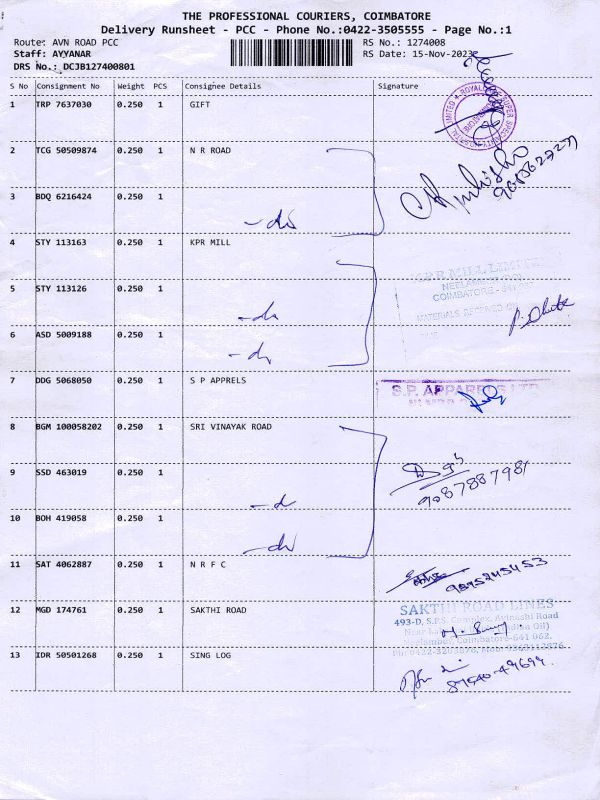 THE PROFESSIONAL COURIERS, COIMBATORE
Delivery Runsheet - PCC - Phone No.:0422-3505555 - Page No.:1
Route: AVN ROAD PCC RS No.: 1274008
Staff: AYYANAR RS Date: 15-Nov-2023
DRS No.: DCJB127400801
S No Consignment No Weight PCS Consignee Details Signature
1 TRP 7637030 0.250 1 GIFT
2 TCG 50509874 0.250 1 N R ROAD
3 BDQ 6216424 0.250 1 -do
4 STY 113163 0.250 1 KPR MILL
K.P.R. MILL LIMITED
COIMBATORE
MATERIALS RECEIVED
5 STY 113126 0.250 1 -do
6 ASD 5009188 0.250 1 -do
7 DDG 5068050 0.250 1 S P APPRELS
S.P. APPARELS LTD
8 BGM 100058202 0.250 1 SRI VINAYAK ROAD
9 SSD 463019 0.250 1 -do
9087887981
10 BOH 419058 0.250 1 -do
11 SAT 4062887 0.250 1 N R F C
12 MGD 174761 0.250 1 SAKTHI ROAD
SAKTHI ROAD LINES
493-D, S.P.S. Complex, Avinashi Road
Coimbatore-641 062.
13 IDR 50501268 0.250 1 SING LOG